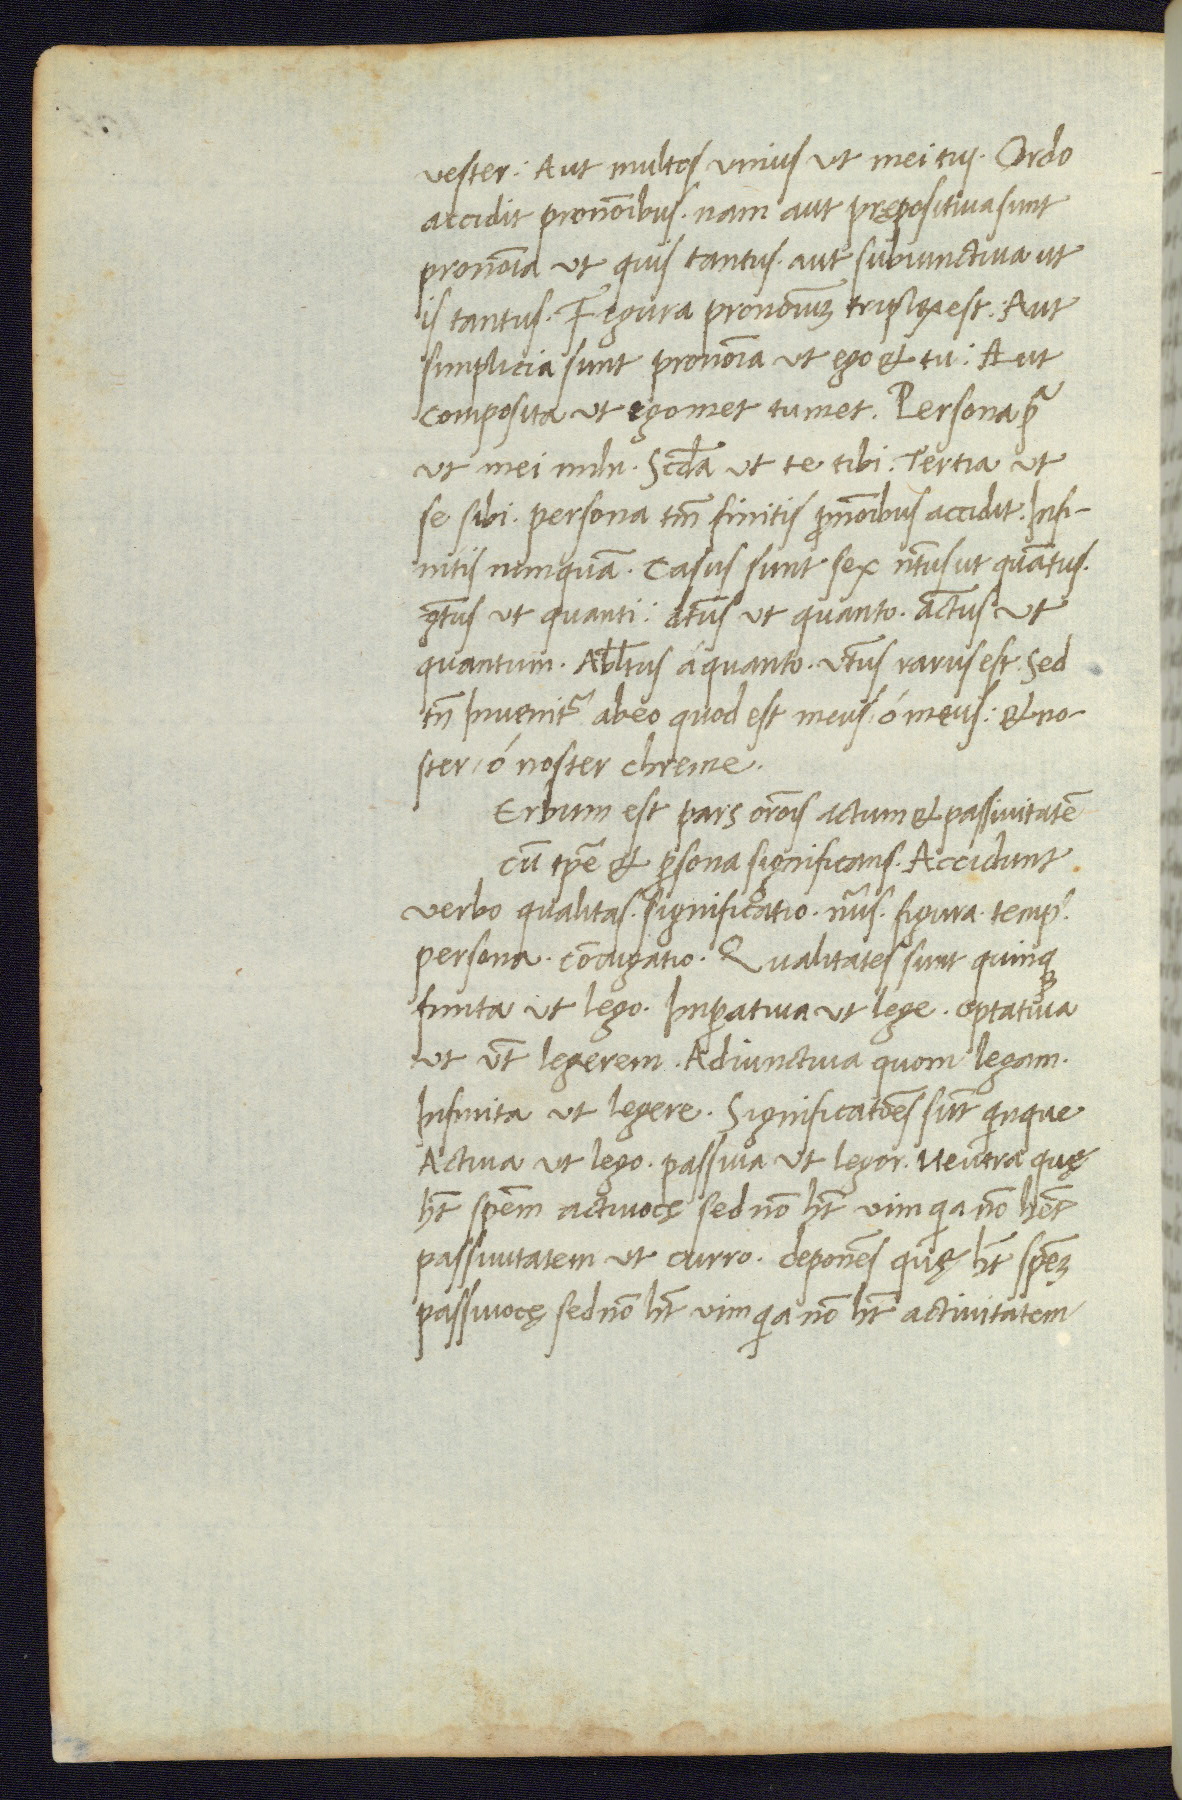 vester: Aut multos unius ut mei tui. Ordo
accidit pronoībus. nam aut prępositiva sunt
pronoīa ut quis tantus. aut subiunctiva ut
is tantus. Figura pronoīuꝫ triplex est. Aut
simplicia sunt pronoīa ut ego & tu: Aut
composita ut egomet tumet. Persona pͣ
ut mei mihi. Scd̄a ut te tibi. Tertia ut
se sibi. persona tm̄ finitis ꝓnoībus accidit. Infi-
nitis nunquā. Casus sunt sex nt̄us ut quātus.
gt̄us ut quanti: dt̄us ut quanto. act̄us ut
quantum. Abl̄tus á quanto. vt̄us rarus est. Sed
tn̄ invenit᷑ ab eo quod est meus / ó meus: & no-
ster / ó noster chreme.
Erbum est pars orōis actum & passivitatē
cū tp̄e & ꝑsona significans. Accidunt
verbo qualitas. significatio. nūs. figura. temp⁹.
persona. cōiugatio. Qualitates sunt quinqꝫ
finita ut lego. Imꝑativa ut lege. optativa
ut ut̄ legerem. Adiunctiva quom legam.
Infinita ut legere. Significatōes sūt qinque
Activa ut lego. passiva ut legor. Neutra quę
hn̄t spēm activocę sed nō hn̄t vim qia nō hēt
passivitatem ut curro. deponēs quę ht̄ spēꝫ
passivocę sed nō ht̄ vim qia nō ht̄ activitatem